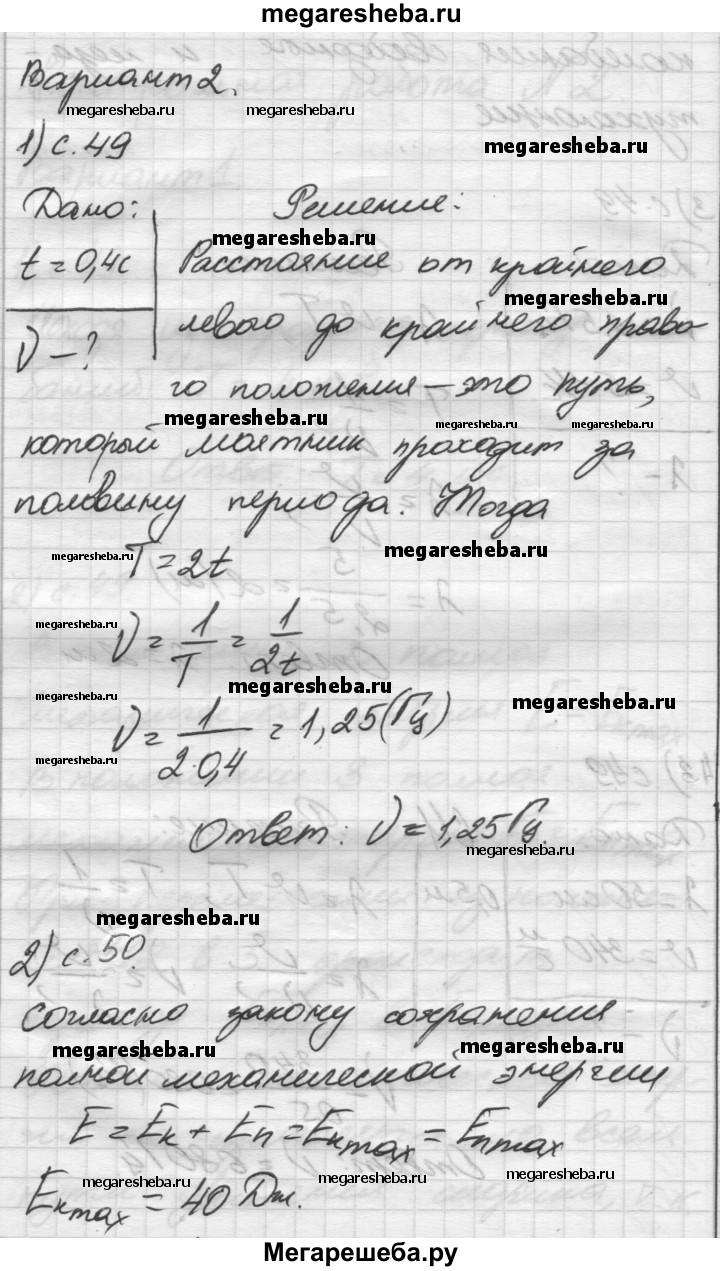 megaresheba.ru
Вариант 2.
megaresheba.ru megaresheba.ru
1) с. 49 megaresheba.ru
Дано: Решение:
megaresheba.ru
t = 0,4с Расстояние от крайнего
megaresheba.ru
ν – ? левого до крайнего право-
го положения – это путь,
megaresheba.ru megaresheba.ru megaresheba.ru
который маятник проходит за
половину периода. Тогда
megaresheba.ru T = 2t megaresheba.ru
megaresheba.ru
ν = 1/T = 1/2t
megaresheba.ru megaresheba.ru
megaresheba.ru megaresheba.ru
ν = 1/2·0,4 = 1,25 (Гц)
megaresheba.ru
Ответ: ν = 1,25 Гц.
megaresheba.ru
megaresheba.ru
2) с. 50.
Согласно закону сохранения
megaresheba.ru megaresheba.ru
полной механической энергии
E = Eк + Eп = Eкmax = Eпmax
megaresheba.ru megaresheba.ru megaresheba.ru
Eкmax = 40 Дж.
Мегарешеба.ру